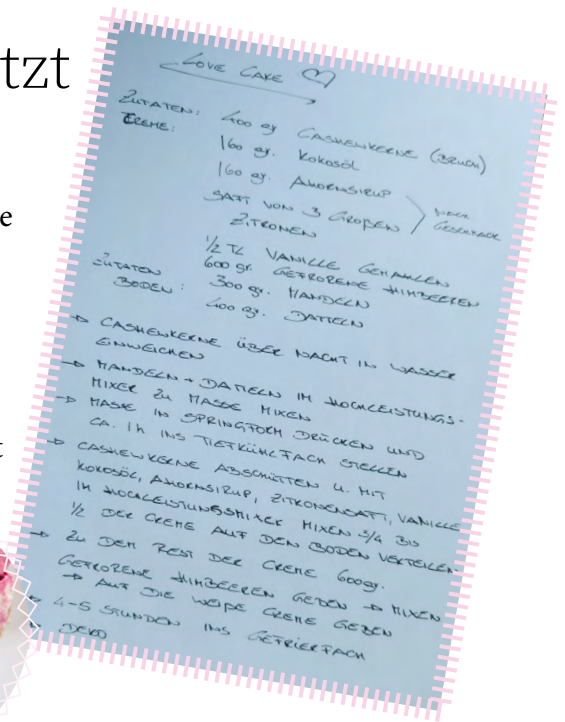 tzt
e
t
LOVE CAKE ♡
ZUTATEN: 400 gr CASHEWKERNE (BRUCH)
CREME: 160 gr. KOKOSÖL
160 gr. AHORNSIRUP
SAFT VON 3 GROßEN NACH
ZITRONEN GESCHMACK
1/2 TL VANILLE GEMAHLEN
600 gr. GEFRORENE HIMBEEREN
ZUTATEN 300 gr. MANDELN
BODEN: 400 gr. DATTELN
→ CASHEWKERNE ÜBER NACHT IN WASSER
EINWEICHEN
→ MANDELN + DATTELN IM HOCHLEISTUNGS-
MIXER ZU MASSE MIXEN
→ MASSE IN SPRINGFORM DRÜCKEN UND
CA. 1h INS TIEFKÜHLFACH STELLEN
→ CASHEWKERNE ABSCHÜTTEN U. MIT
KOKOSÖL, AHORNSIRUP, ZITRONENSAFT, VANILLE
IM HOCHLEISTUNGSMIXER MIXEN 3/4 BIS
1/2 DER CREME AUF DEN BODEN VERTEILEN
→ ZU DEM REST DER CREME 600gr.
GEFRORENE HIMBEEREN GEBEN → MIXEN
→ AUF DIE WEIßE CREME GEBEN
→ 4-5 STUNDEN INS GEFRIERFACH
→ DEKO